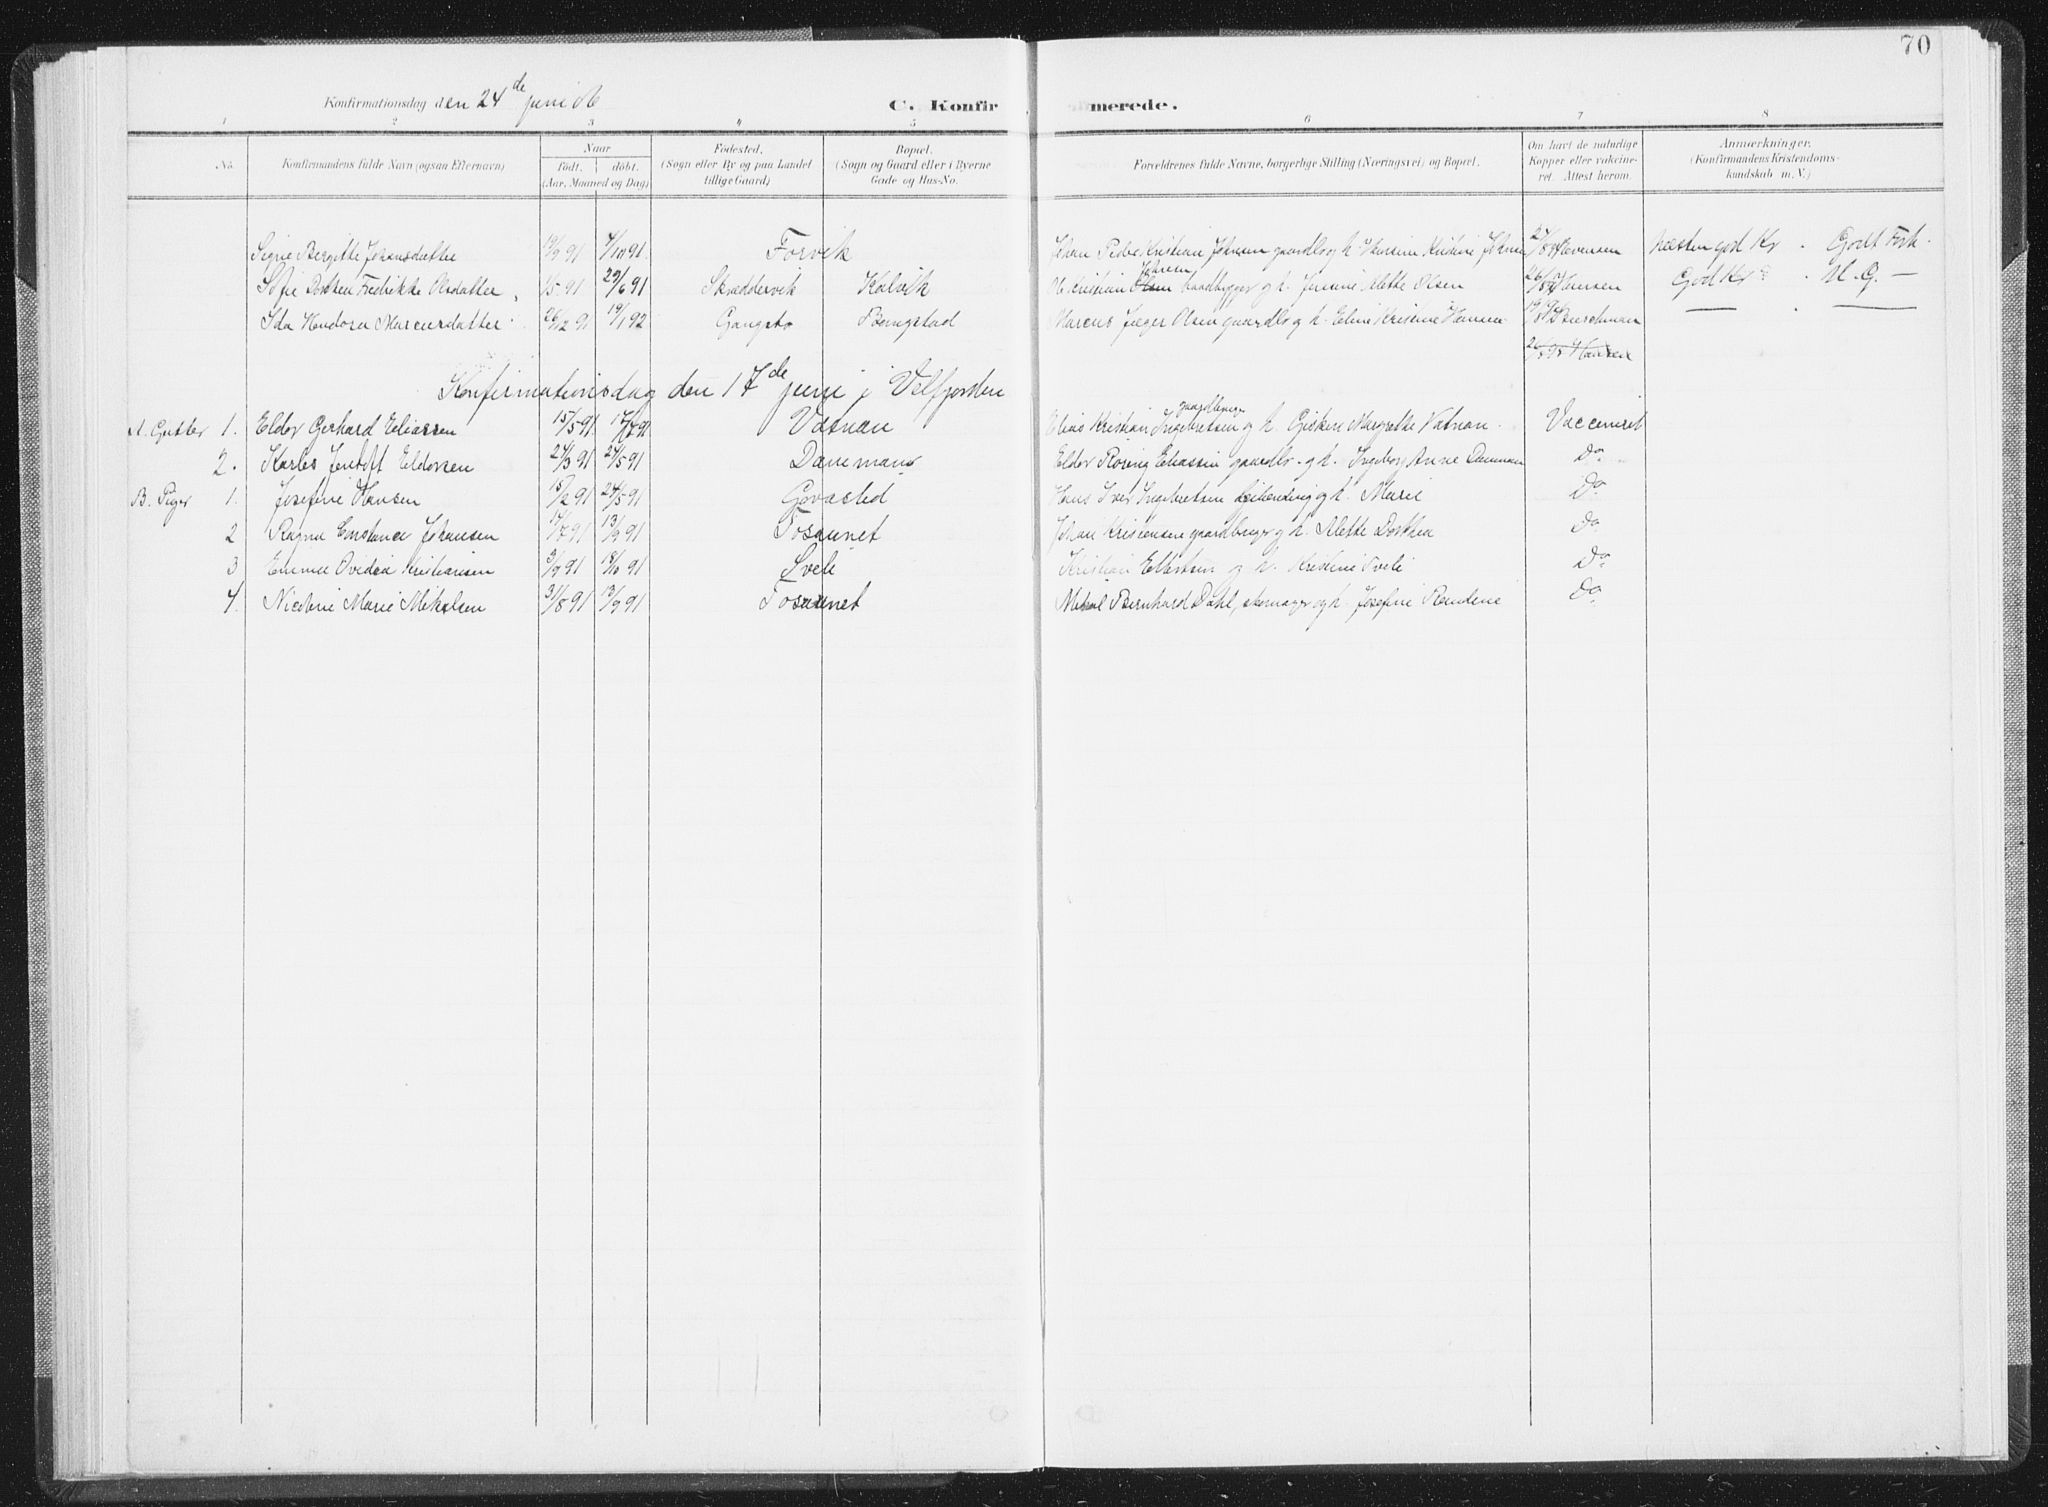 70
Konfirmationsdag den 24de juni 06
C. Konfirmerede.
1 2 3 4 5 6 7 8
No. Konfirmandens fulde Navn (ogsaa Efternavn) Naar Födt. döbt. (Aar, Maaned og Dag) Födested. (Sogn eller By og paa Landet tillige Gaard) Bopæl. (Sogn og Gaard eller i Byerne Gade og Hus-No. Forældrenes fulde Navne, borgerlige Stilling (Næringsvei) og Bopæl. Om havt de naturlige Kopper eller vakcineret. Attest herom. Anmærkninger. (Konfirmandens Kristendomskundskab m. V.)
Signe Bergitte Johansdatter 19/9 91 4/10 91. Forvik Johan Peder Kristian Johnsen gaardbr og h. Kristine Johnsen næsten god Kr. Godt Forh.
Sofie Fredrikke Olsdatter 1/5 91 29/6 91 Skræddervik Kalvik Kristian Johnsen baadbygger g h. Jensine Alette Olsen 26/5 Hansen God Kr. M. G. —
Ida Marcusdatter 26/12 91 19/1 92 Gangstø Bemgstad Marcus Jæger Olsen gaardbr g h. Eline Hansen — —
Hansen
Konfirmationsdag den 17de juni i Velfjorden
A. Gutter 1. Eldor Gerhard Eliassen 15/5 91. 17/7 91 Vatnan Elias Kristian Ingebretsen gaardbruger g h. Margrethe Vatnan. Vacceneret
2. Karles Jentoft Eldorsen 24/3 91 24/5 91 Danemans Eldor Rosing Eliassen gaardbr. g h. Ingeborg Anne Do
B. Piger 1. Josefine Hansen 15/2 91 24/5 91 Gvasted Hans Iver Ingebretsen g h. Marie Do
2 Ragna Constance Johansen 17/7 91 13/9 91 Tosaunet Johan Kristensen gaardbruger g h. Alette Dorthea Do
3 Emma Ovidia Kristiansen 3/9 91 18/10 91 Sveli Kristian Ellertsen g h. Kristine Sveli Do
4. Nicoline Marie Mikalsen 31/8 91 13/9 91 Tosaunet Mikal Bernhard Dahl, skomager og h. Josefine Do